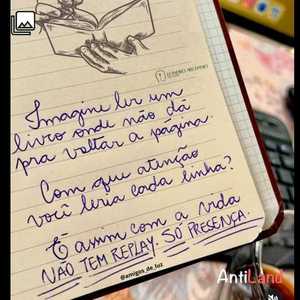 Imagine ler um
livro onde não dá
pra voltar a página.
Com que atenção
você leria cada linha?
É assim com a vida
NÃO TEM REPLAY. SÓ PRESENÇA.
@amigos_de_luz
AntiLand